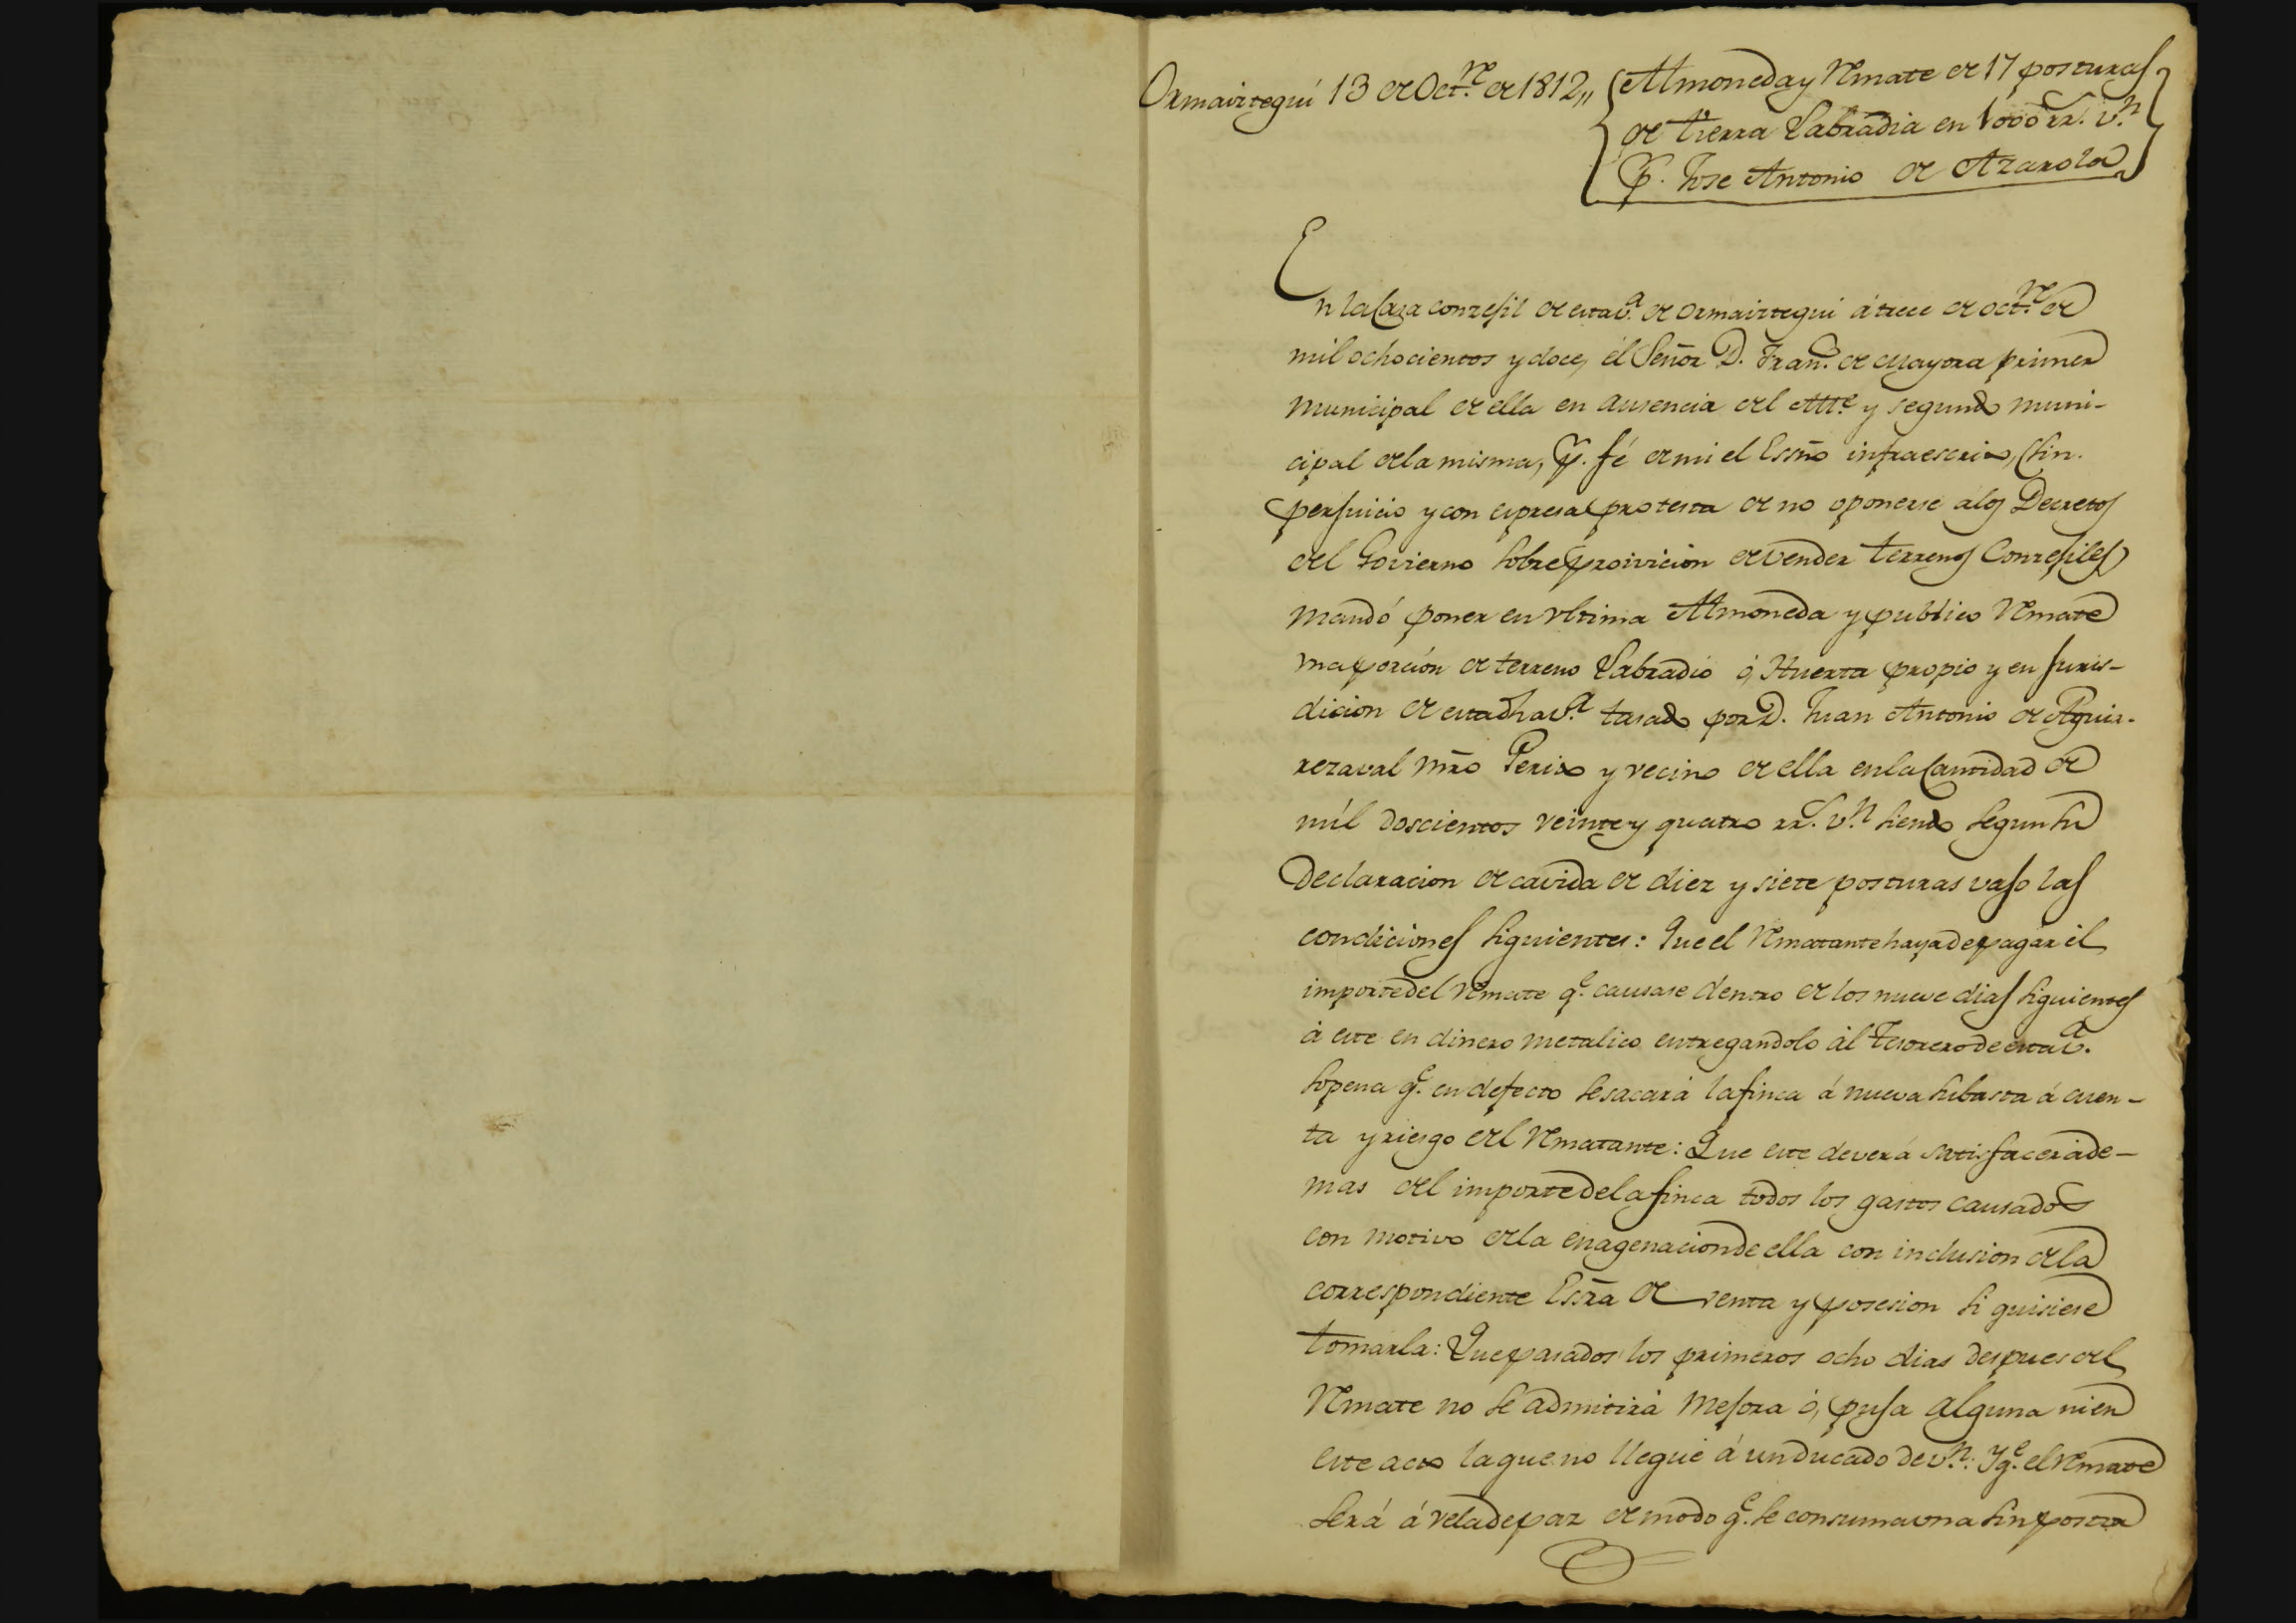 Ormaiztegui 13 de Oct.re de 1812,, Almoneda y Rmate de 17 posturas
de tierra Labradia en 1000 rr.s v.n
P. Jose Antonio de Azarola
En la Casa conzejil de esta v.a de Ormaiztegui á trece de oct.re de
mil ochocientos y doce, el Señor D. Fran.co de Mayora primer
Municipal de ella en ausencia del Alc.e y segundo muni-
cipal de la misma, P. fé de mi el Essno infraescrito, sin
perjuicio y con expresa protesta de no oponerse a los Decretos
del Govierno sobre proivicion de vender terrenos Conzejiles
mandó poner en vltima Almoneda y publico Rmate
vna porción de terreno Labradio ó, Huerta propio y en Juris-
dicion de esta dha v.a tasado por D. Juan Antonio de Aguir-
rezaval Mro Perito y vecino de ella en la Cantidad de
mil doscientos veinte y quatro rr.s v.n siendo segun su
Declaracion de cavida de diez y siete posturas vajo las
condiciones siguientes: Que el Rmatante haya de pagar el
importe del Rmate q.e causase dentro de los nueve dias siguientes
á este en dinero metalico entregandolo al Tesorero de esta v.a
sopena q.e en defecto se sacará la finca á nueva subasta á cuen-
ta y riesgo del Rmatante: Que este deverá satisfacer ade-
mas del importe de la finca todos los gastos causados
con motivo de la enagenacion de ella con inclusion de la
correspondiente Essra de venta y posesion si quisiese
tomarla: Que pasados los primeros ocho dias despues del
Rmate no se admitirá Mejora ó, puja alguna ni en
este acto la que no llegue á un ducado de v.n: Y q.e el Rmate
será á vela de paz de modo q.e se consuma vna sin postra